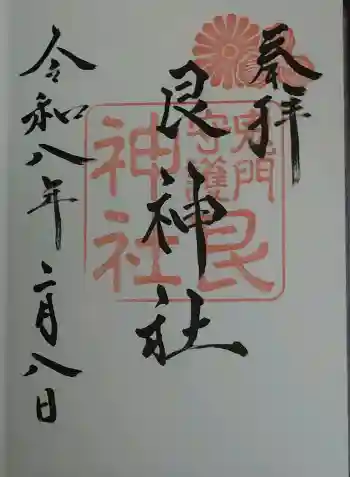 奉拝
艮神社
令和八年二月八日
鬼門
守護
艮
神社